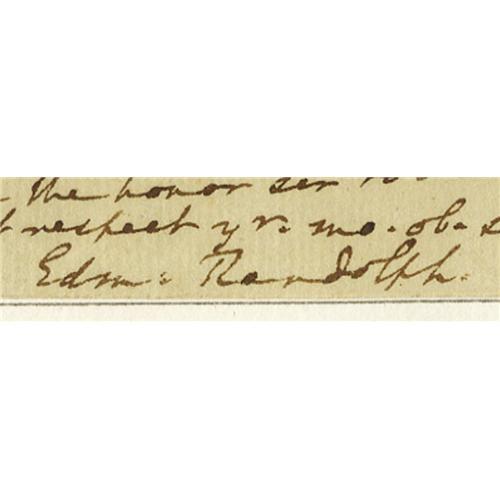 the honor sir to
respect yr. mo. ob. s
Edm: Randolph.